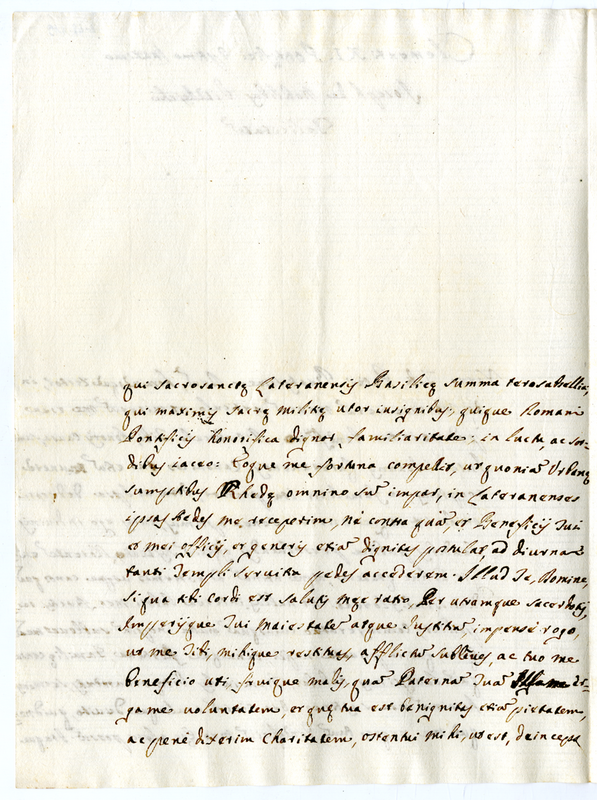 qui sacrosanctę Lateranensis Basilicę summa
qui maximis sacrę militię utor insignibus, quique Romani
Pontificis honorifica dignor familiaritate; in luctu, ac sor-
dibus iaceo: Eoque me fortuna compellit, ut quonia Urbanę
sumptibus Rhedę omnino su impar, in Lateranenses
ipsas Aedes me receperim, nè contra quã, et Beneficij tui
et mei officij, et generis etiã dignitas postulat, ad diurna
tanti Templi servitia pedes accederem. Illud Te, Domine,
si qua tibi cordi est salutis meę ratio, Per utramque sacerdotij,
Imperijque Tui maiestatẽ atque Iustitiã, impensè rogo,
ut me Tibi, mihique restituas, afflictũ subleves, ac tuo me
beneficio uti, fruique malis, quã Paternã Tuã er-
ga me voluntatem, et quę tua est benignitas etiã pietatem,
ac penè dixerim Charitatem, ostentui mihi, ut est, deinceps